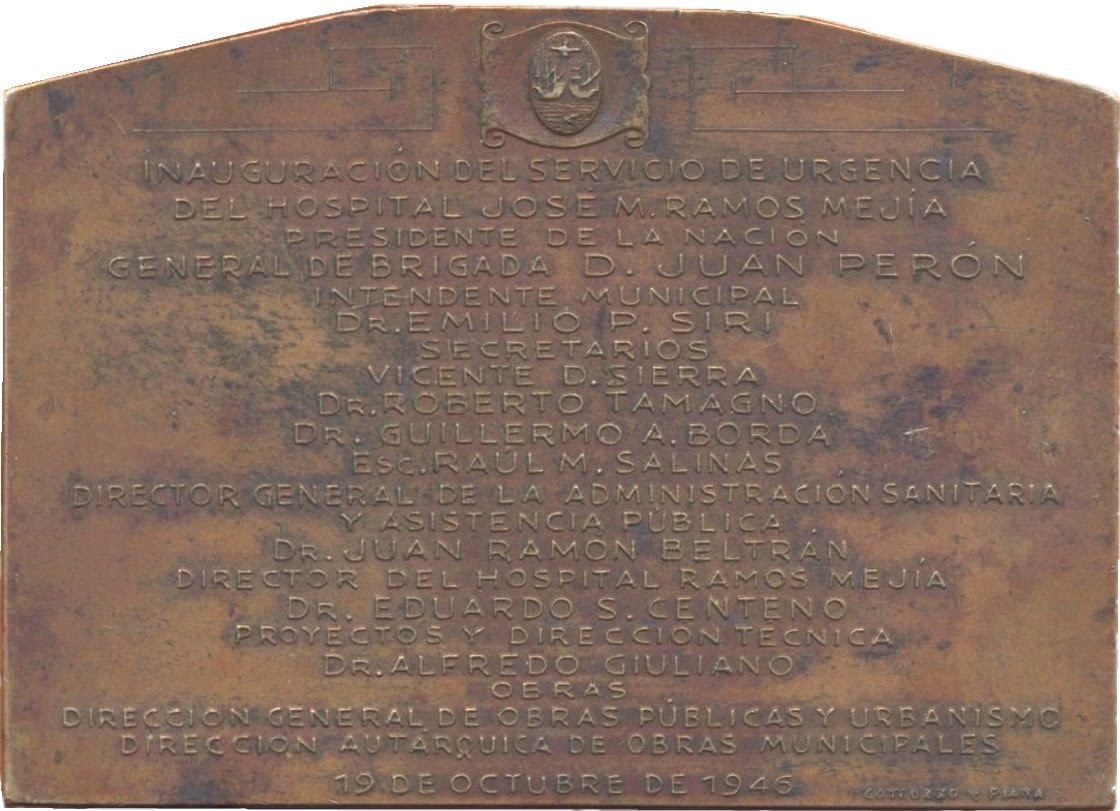 INAUGURACIÓN DEL SERVICIO DE URGENCIA
DEL HOSPITAL JOSÉ M. RAMOS MEJÍA
PRESIDENTE DE LA NACIÓN
GENERAL DE BRIGADA D. JUAN PERÓN
INTENDENTE MUNICIPAL
DR. EMILIO P. SIRI
SECRETARIOS
VICENTE D. SIERRA
DR. ROBERTO TAMAGNO
DR. GUILLERMO A. BORDA
ESC. RAÚL M. SALINAS
DIRECTOR GENERAL DE LA ADMINISTRACIÓN SANITARIA
Y ASISTENCIA PÚBLICA
DR. JUAN RAMÓN BELTRÁN
DIRECTOR DEL HOSPITAL RAMOS MEJÍA
DR. EDUARDO S. CENTENO
PROYECTOS Y DIRECCIÓN TÉCNICA
DR. ALFREDO GIULIANO
OBRAS
DIRECCIÓN GENERAL DE OBRAS PÚBLICAS Y URBANISMO
DIRECCIÓN AUTÁRQUICA DE OBRAS MUNICIPALES
19 DE OCTUBRE DE 1946
Y PIANA